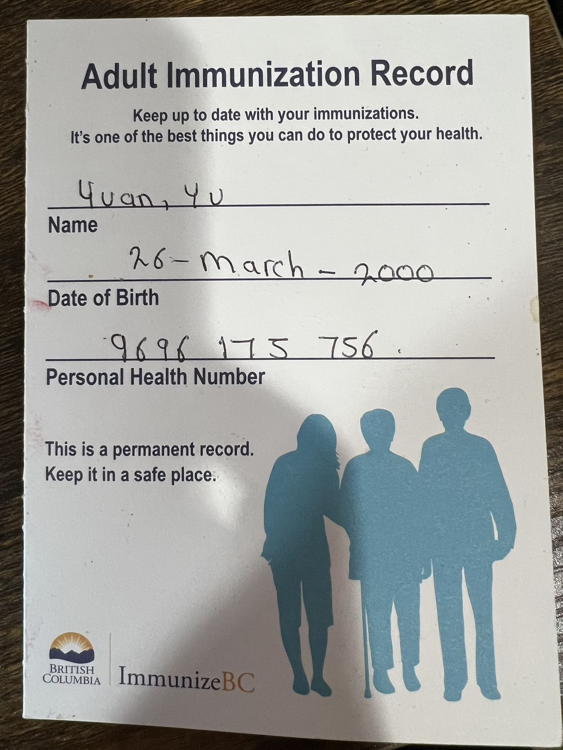 Adult Immunization Record
Keep up to date with your immunizations.
It's one of the best things you can do to protect your health.
Yuan, Yu
Name
26-March-2000
Date of Birth
9696 175 756.
Personal Health Number
This is a permanent record.
Keep it in a safe place.
BRITISH
COLUMBIA
ImmunizeBC